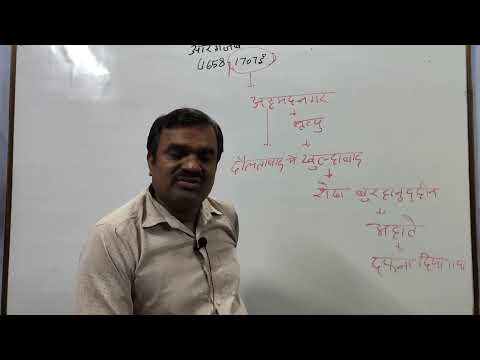 औरंगजेब
(1658-1707ई
अहमदनगर
मृत्यु
दौलताबाद में खुल्दाबाद
शेख बुरहानुद्दीन
अहाते
दफना दिया गया